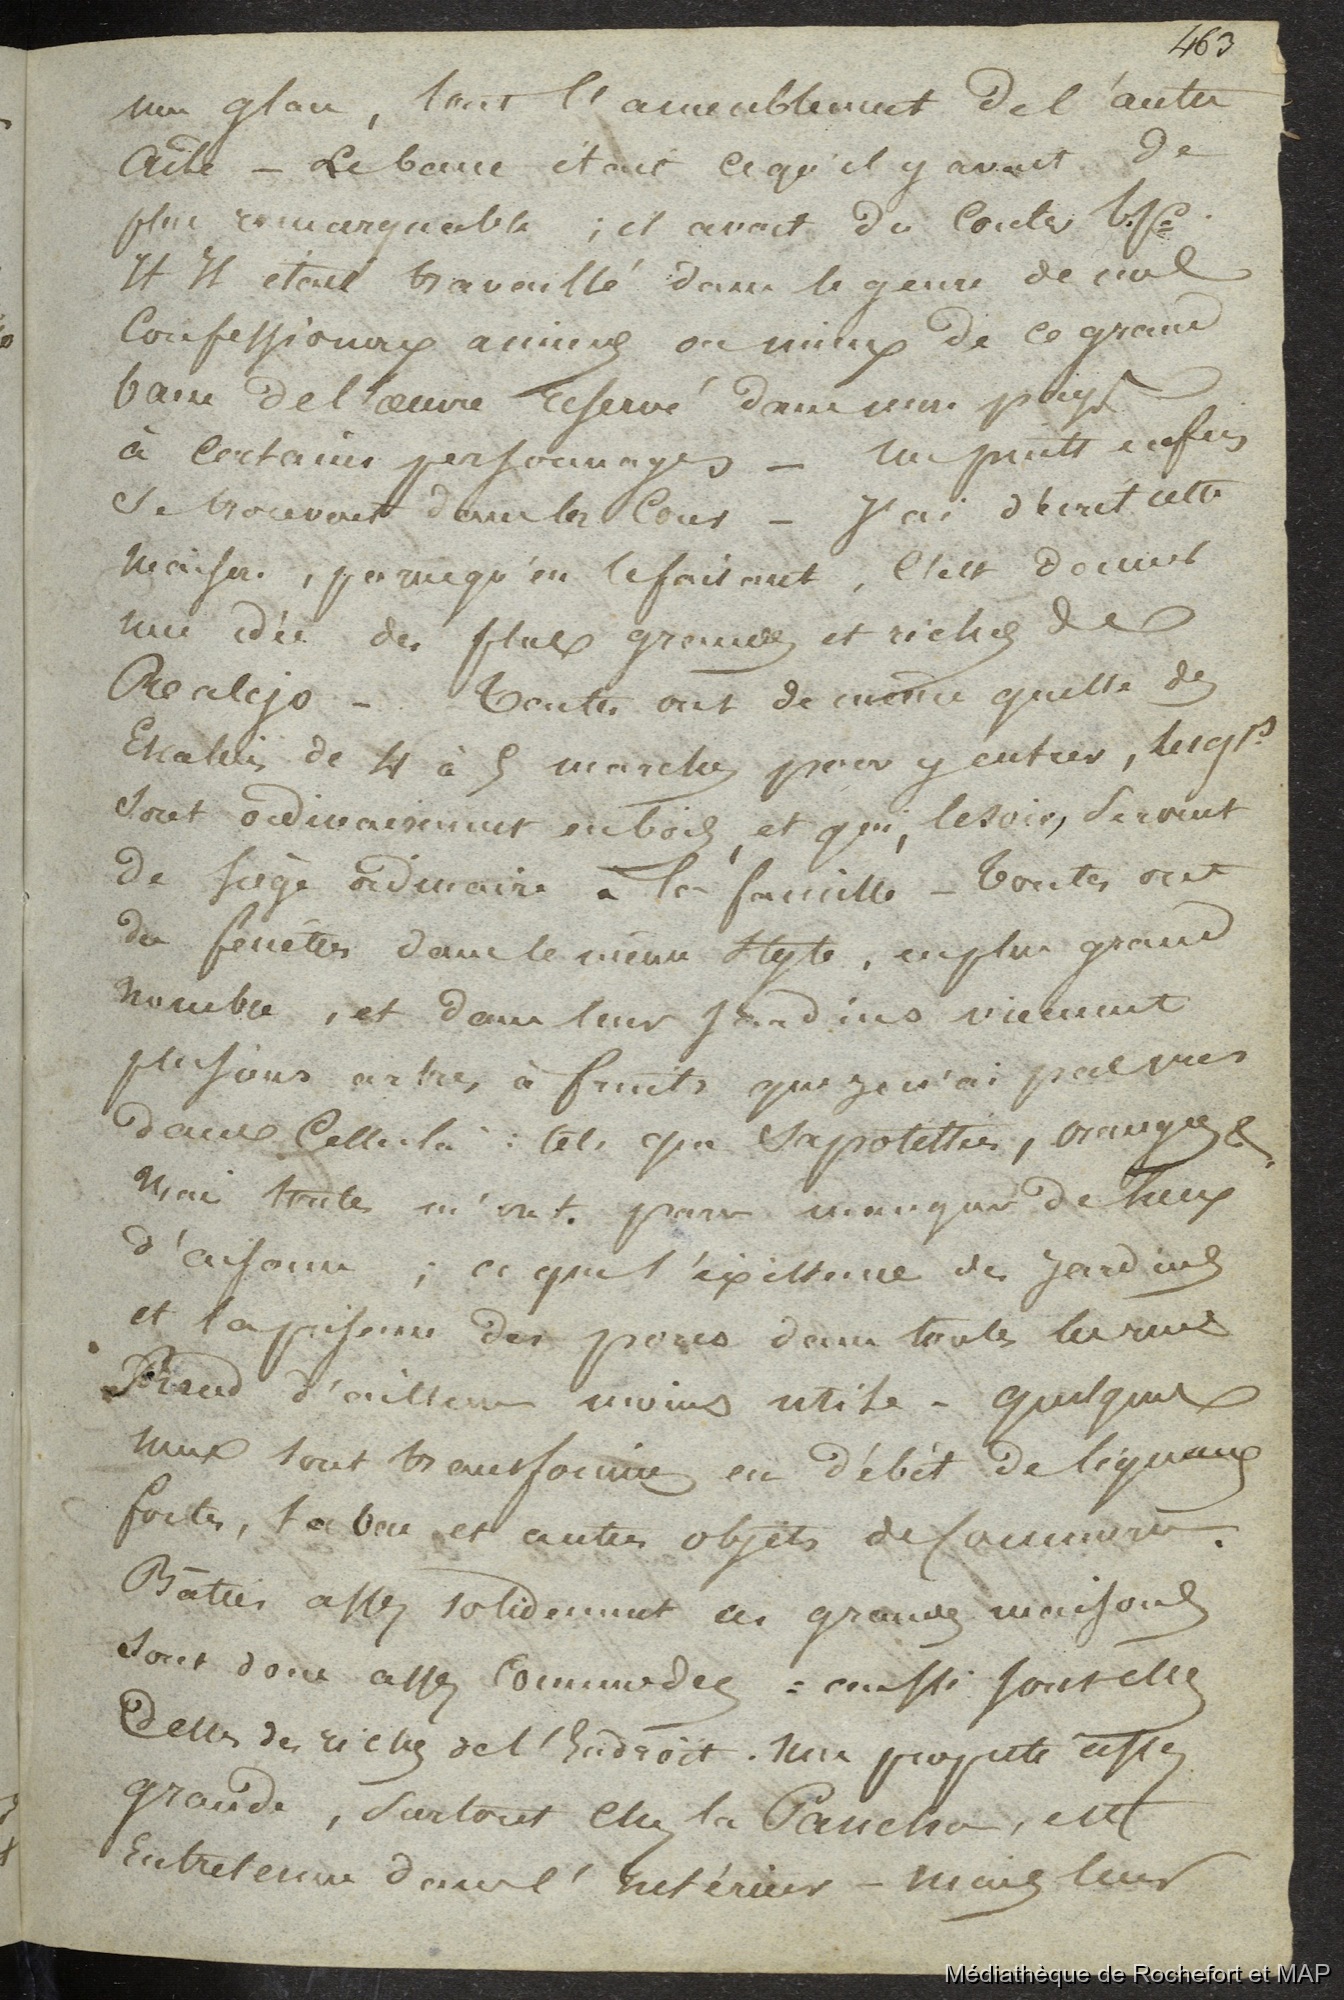 463
une glace, tout l'ameublement de l'autre
Côté — Le banc était ce qu'il y avait de
plus remarquable ; il avait dû coûter
Il était travaillé dans le genre de nos
Confessionaux anciens ou mieux de ce grand
banc de l'œuvre réservé dans mon pays
à certains personnages — Un puits enfin
se trouvait dans la Cour — J'ai décrit cette
maison, parcequ'en le faisant, c'est donner
une idée des plus grandes et riches de
Realejo — Toutes ont de même que lle des
Escaliers de 4 à 5 marches pour y entrer, lesqls
sont ordinairement en bois, et qui, le soir, servent
de siège ordinaire à la famille — Toutes ont
des fenêtres dans le même style, en plus grand
nombre, et dans leur jardins viennent
plusieurs arbres à fruits que je n'ai pas vus
dans Celle là : tels que Sapotettiers, oranges &.
Mais toutes n'ont pas manque de lieux
d'aisance ; ce que l'existence des jardins
et la présence des porcs dans toutes les rues
Rend d'ailleurs moins utile — quelques
unes sont transformées en débit de liqueurs
fortes, tabac et autres objets de Commerce.
Bâties assez solidement ces grandes maisons
sont donc assez Commodes = aussi sont elles
Celles des riches de l'Endroit. Une propreté assez
grande, surtout Chez la Pancha, est
Entretenue dans l'intérieur — mais leur
Médiathèque de Rochefort et MAP